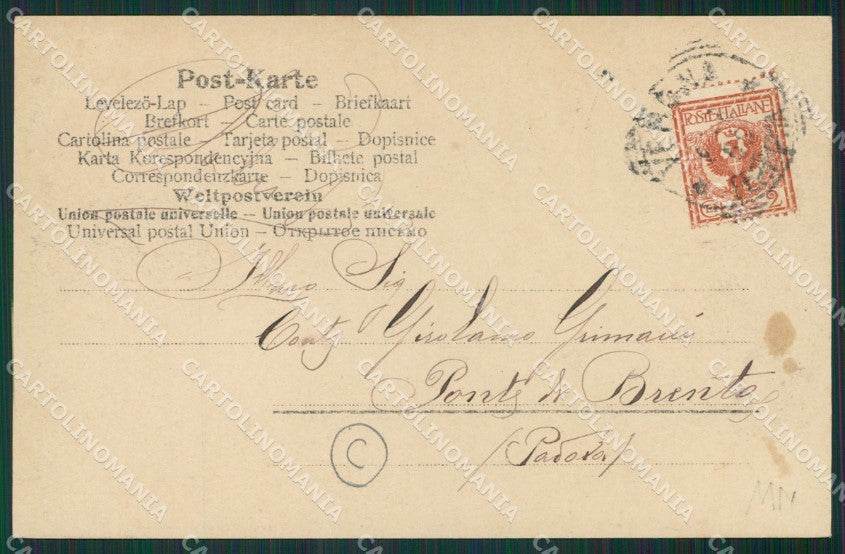 Post-Karte
Levelező-Lap – Post card – Briefkaart
Brefkort – Carte postale
Cartolina postale – Tarjeta postal – Dopisnice
Karta Korespondencyjna – Bilhete postal
Correspondenzkarte – Dopisnica
Weltpostverein
Union postale universelle – Union postale universale
Universal postal Union – Открытое письмо
POSTE ITALIANE
2
VERONA
Sig
Conte Girolamo
Ponte di Brenta
(Padova)
C
MN
CARTOLINOMANIA